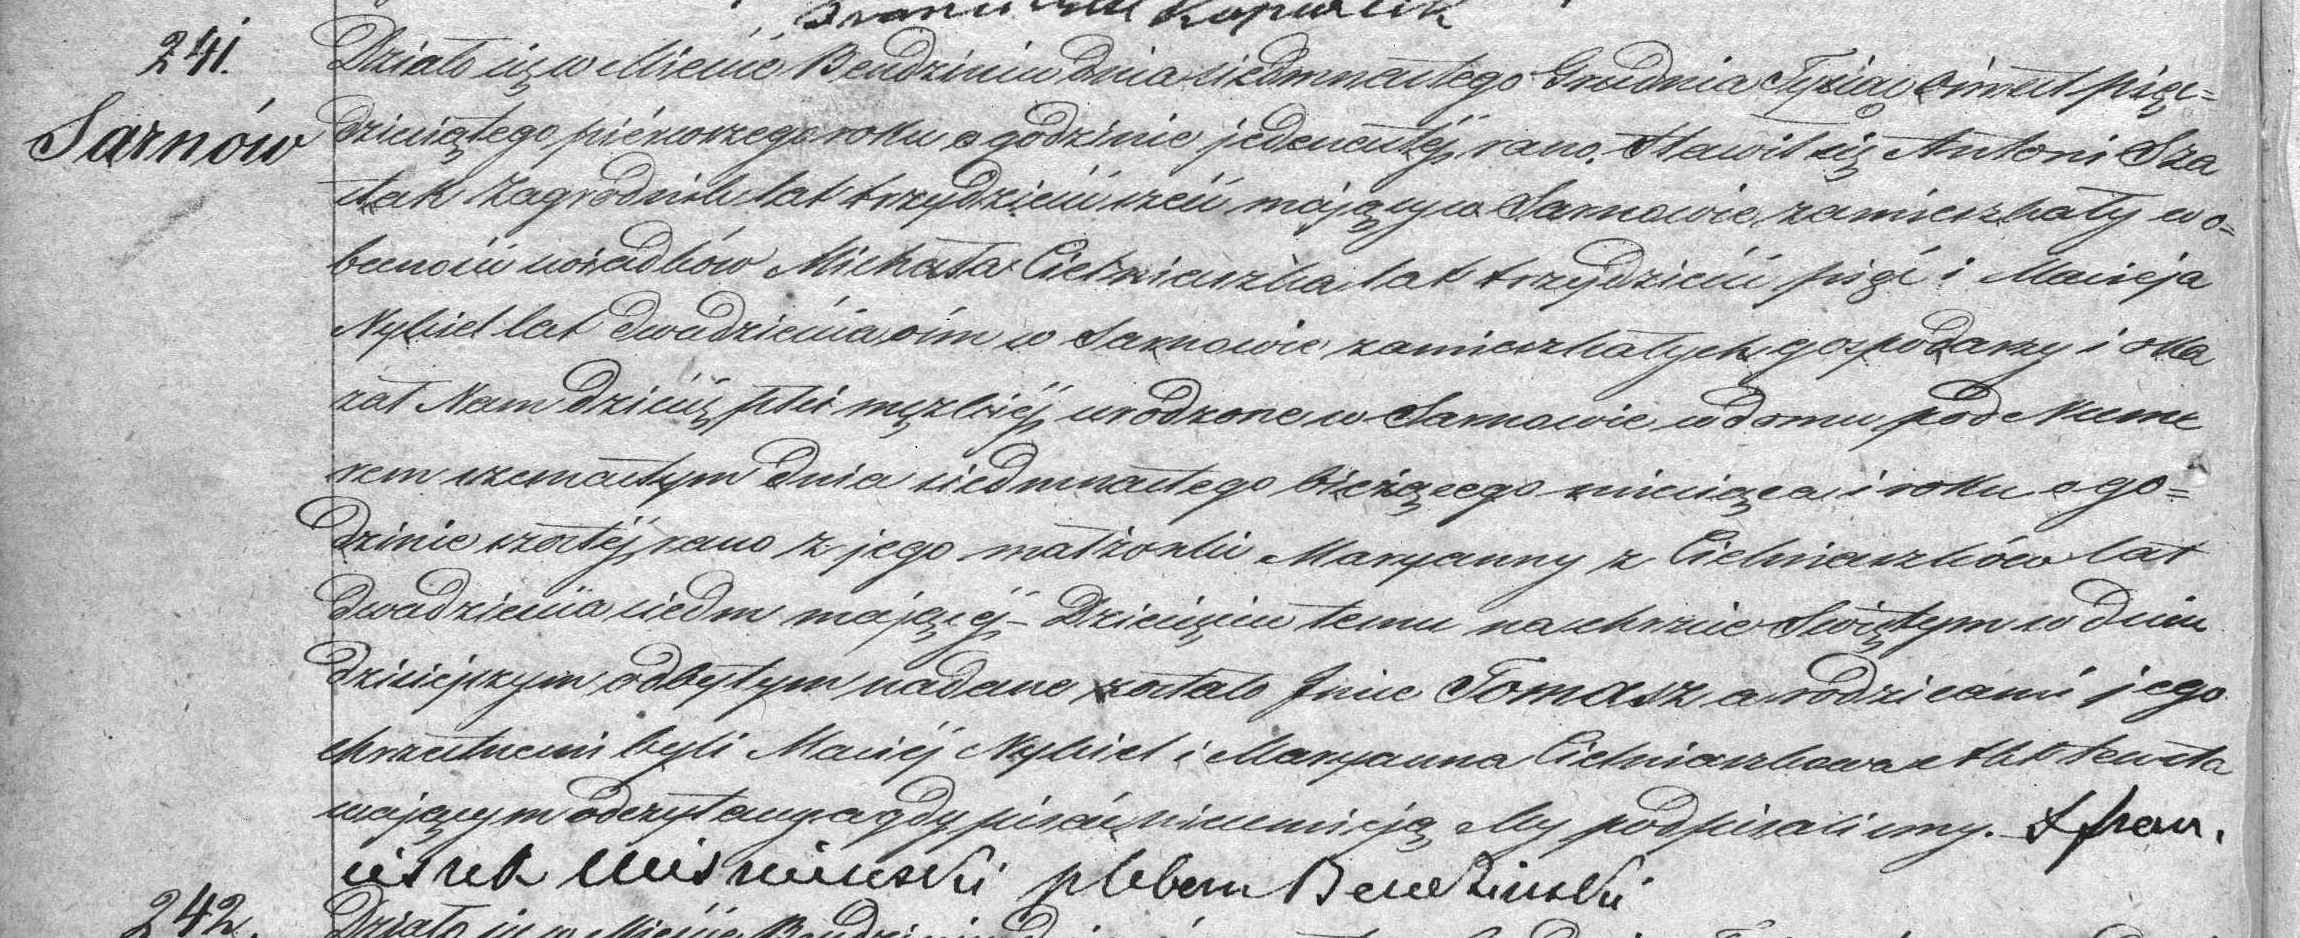 Franciszek
241.
Sarnów
Działo się w Mieście Bendzinie dnia siedmnastego Grudnia Tysiąc ośmset pięć=
dziesiątego piérwszego roku o godzinie jedenastéj rano. Stawił się Antoni Sza
stak zagrodnik lat trzydzieści sześć mający w Sarnowie zamieszkały w o=
becności świadków Michała Cieśniaszka lat trzydzieści pięć i Macieja
Nykiel lat dwadzieścia ośm w Sarnowie zamieszkałych gospodarzy i oka
zał Nam dziecię płci męzkiéj urodzone w Sarnowie w domu pod Nume
rem szesnastym dnia siedmnastego bieżącego miesiąca i roku o go=
dzinie szóstéj rano z jego małżonki Maryanny z Cieśniaszków lat
dwadzieścia siedm mającéj – Dziecięciu temu na chrzcie Świętym w dniu
dzisiejszym odbytym nadane zostało Imie Tomasz a rodzicami jego
chrzestnemi byli Maciéj Nykiel i Maryanna Cieśniaszkowa Akt ten sta
wającym odczytany a gdy pisać nieumieją My podpisaliśmy. X fran.
ciszek pleban Bendzinski
242.
Działo się w Mieście Bendzinie